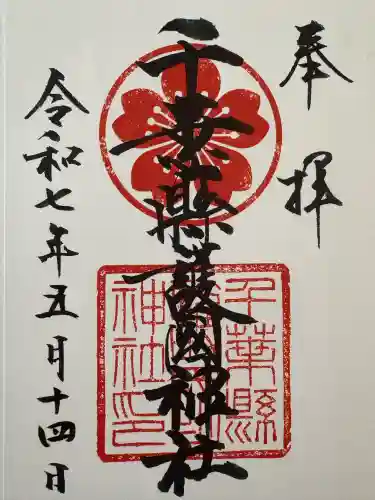 奉拝
千葉縣護國神社
令和七年五月十四日
千葉縣
護國
神社印